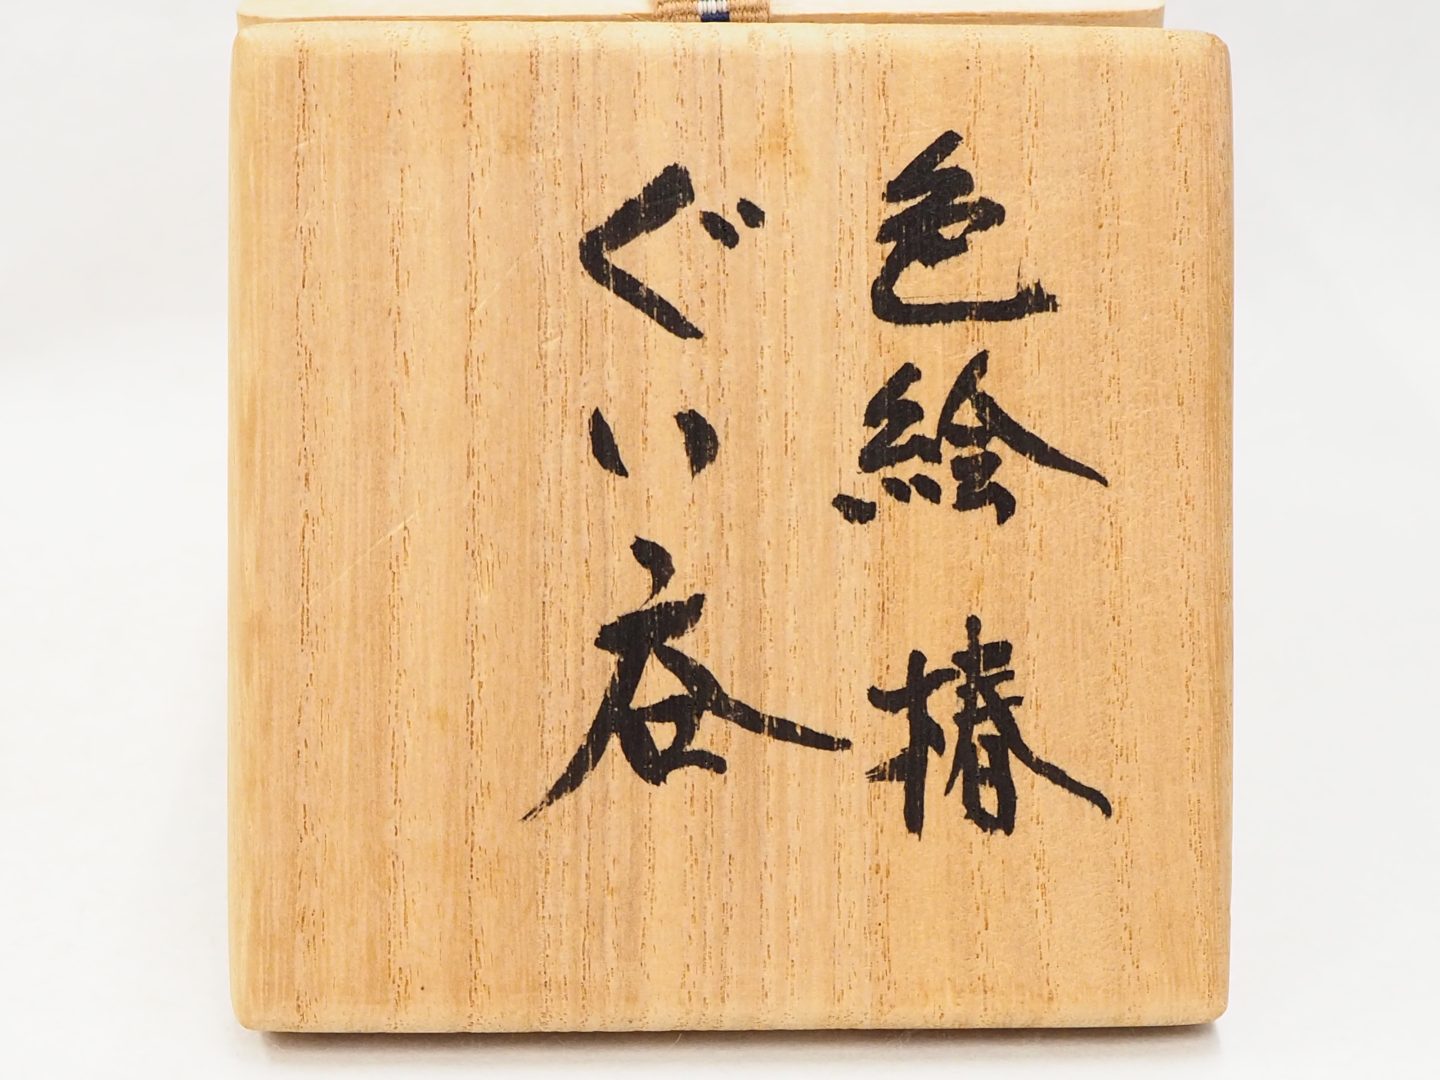 色絵 椿
ぐい呑